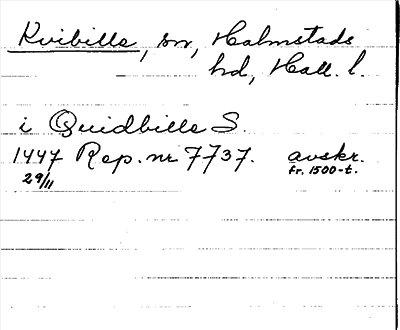 Kvibille, sn, Halmstads
hd, Hall. l.
i Quidbille S.
1447 Rep. nr 7737. avskr.
29/11 fr. 1500-t.